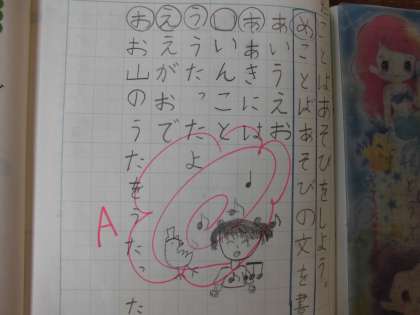 ことばあそびをしよう。
めことばあそびの文を書
あいうえお
ああきには
いんこと
ううたったよ
ええがおで
おお山のうたをうたった
A